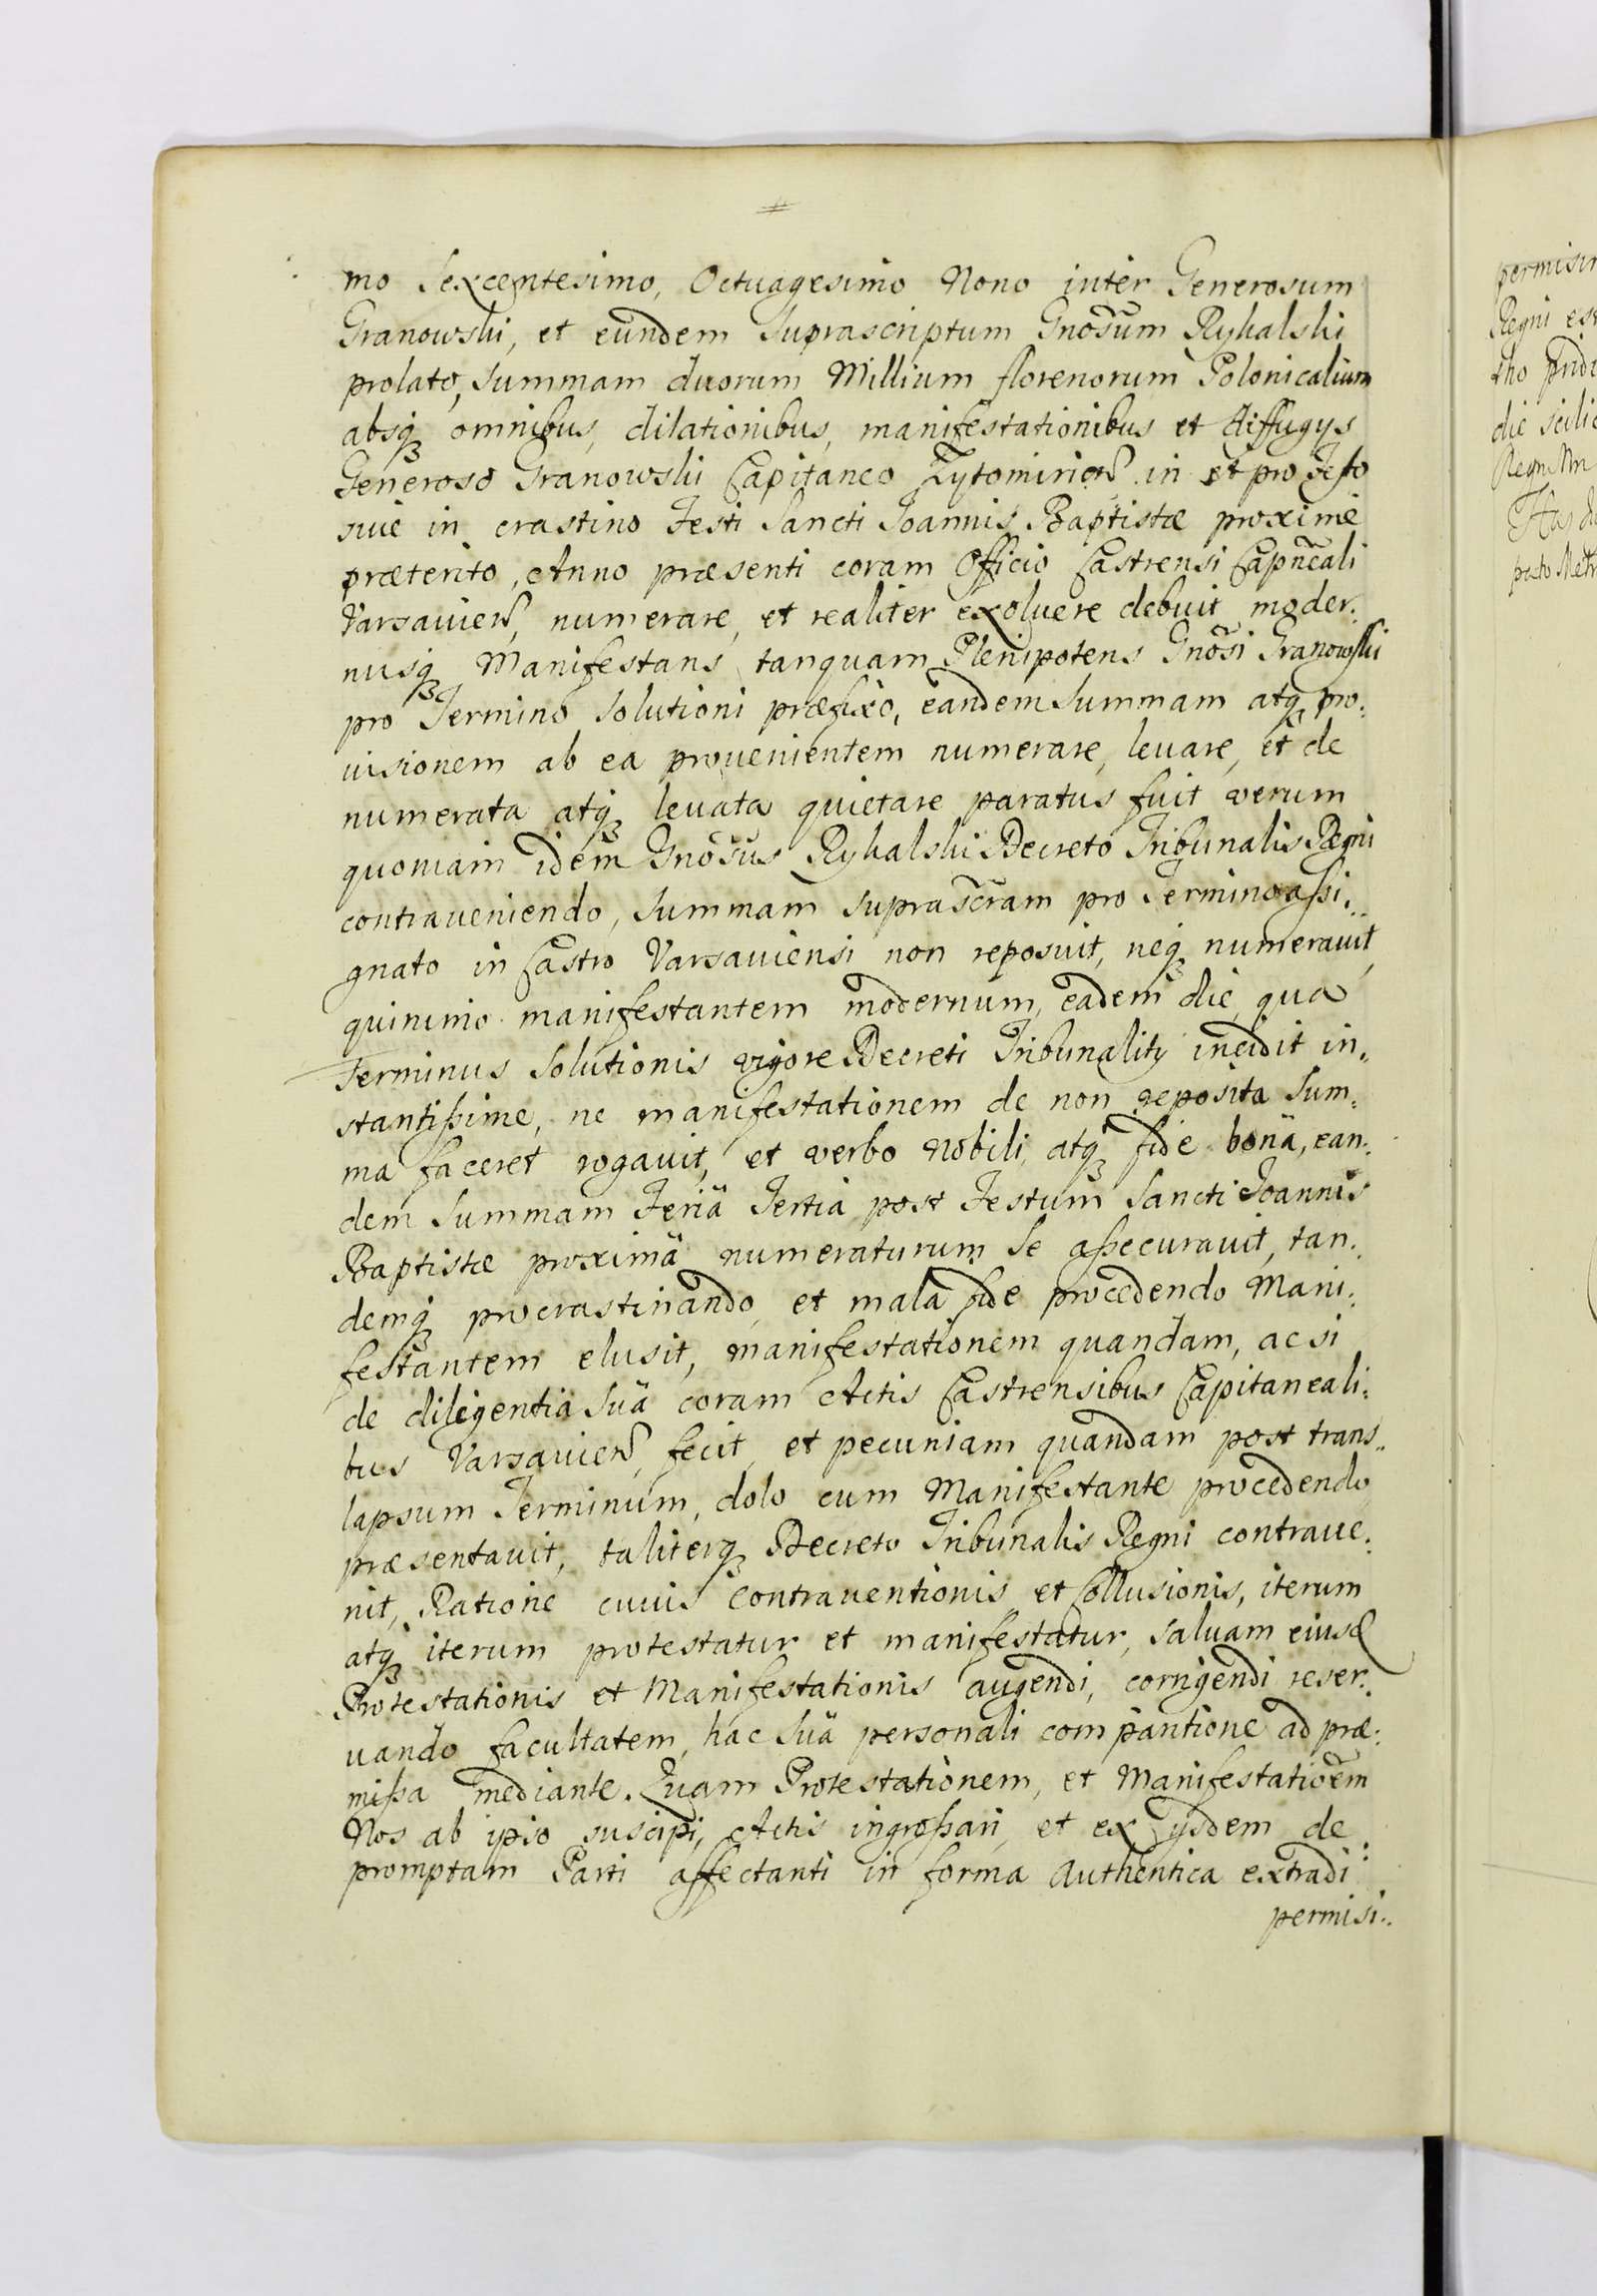 mo Sexcentesimo, Octuagesimo Nono inter Generosum
Granowski, et eundem Suprascriptum Gnosum Rykalski
prolato, Summam duorum Millium florenorum Polonicalium
absq omnibus, dilationibus, manifestationibus et diffugys
Generoso Granowski Capitaneo Zytomirien in et pro Festo
siue in crastino Festi Sancti Joannis Baptistæ proxime
præterito, Anno præsenti coram Officio Castrensi Capnẽali
Varsavien, numerare, et realiter exoluere debuit, moder:
nusq Manifestans tanquam Plenipotens Gnosi Granowski
pro Termino Solutioni præfixo, eandem Summam atq pro:
uisionem ab ea prouenientem numerare, leuare, et de
numerata atq leuata quietare paratus fuit verum
quoniam idem Gnosus Rykalski Decreto Tribunalis Regni
contraueniendo, Summam suprascram pro Termino assi:
gnato in Castro Varsauiensi non reposuit, neq numerauit,
quinimo manifestantem modernum, eadem die, qua
Terminus Solutionis vigore Decreti Tribunality incidit in:
stantißime, ne manifestationem de non reposita Sum:
ma faceret rogauit, et verbo Nobili, atq fide bonä, ean:
dem Summam Feriä Tertia post Festum Sancti Joannis
Baptistæ proximä numeraturum Se aßecurauit, tan:
demq procrastinando, et mala fide procedendo Mani:
festantem elusit, manifestationem quandam, ac si
de diligentia Suä coram Actis Castrensibus Capitaneali:
bus Varsavien, fecit, et pecuniam quandam post trans:
lapsum Terminum, dolo cum Manifestante procedendo
præsentauit, taliterq Decreto Tribunalis Regni contraue:
nit, Ratione cuius contrauentionis et Collusionis, iterum
atq iterum protestatur et manifestatur, saluam eiusd
Protestationis et Manifestationis augendi, corrigendi reser:
uando facultatem, hac Suä personali compantione ad præ:
mißa mediante. Quam Protestationem, et Manifestatiõem
Nos ab ipso suscipi, Actis ingroßari, et ex ijsdem de
promptam Parti affectanti in forma Authentica extradi
permisi:
permisi
Regni
die
Regni